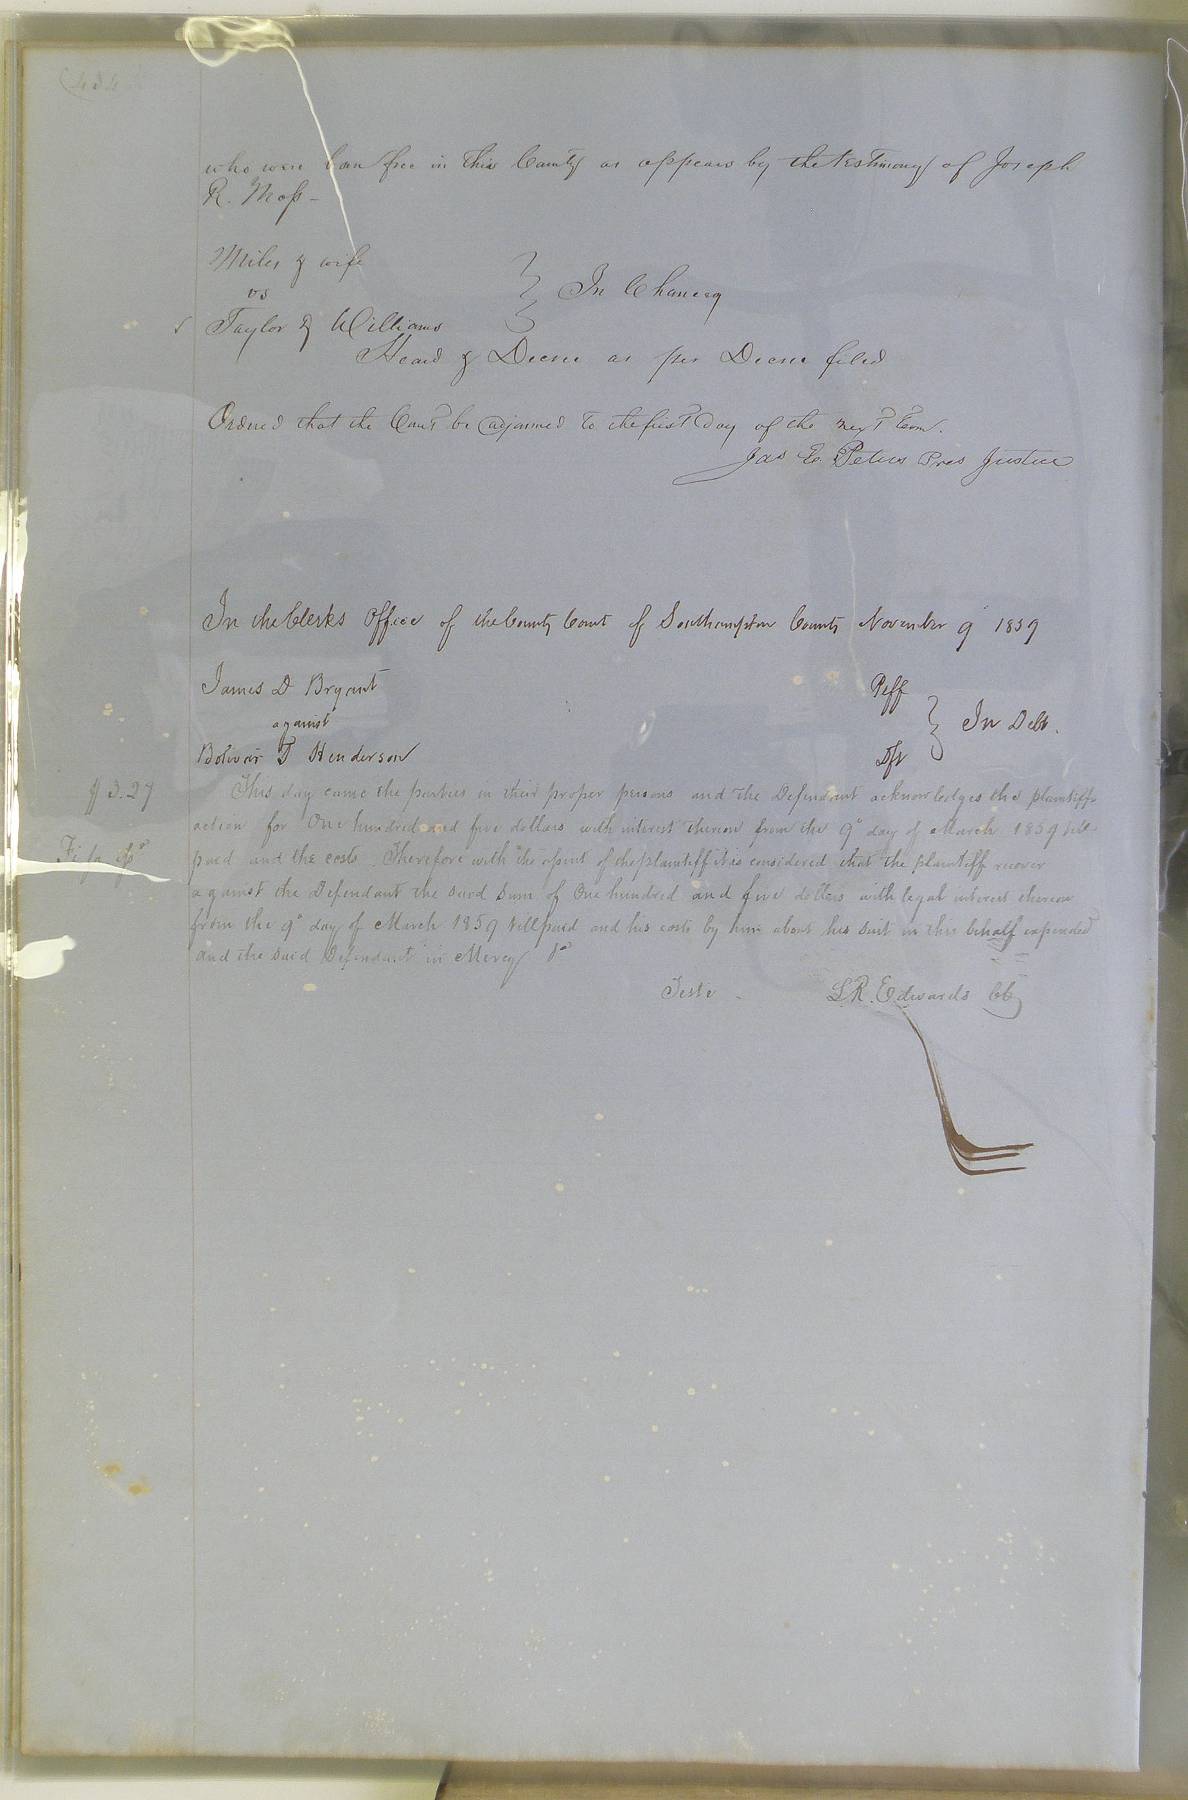 who were born free in this County as appears by the testimony of Joseph
R. Moss -
Miles & wife
vs
Taylor & Williams } In Chancery
Heard & Decree as per Decree filed
Ordered that the Court be adjourned to the first Day of the next term.
Jas E. Peters Pres Justice
In the Clerks Office of the County Court of Southampton County November 9th 1859
James D Bryant Plff
against } In Debt.
Bolivar T Henderson Dft
$3.27
This day came the parties in their proper persons and the Defendant acknowledges the plaintiffs
action for One hundred and five dollars with interest thereon from the 9th day of March 1859 till
Fi fa
paid and the costs. Therefore with the assent of the plaintiff it is considered that the plaintiff recover
against the Defendant the said sum of One hundred and five dollars with legal interest thereon
from the 9th day of March 1859 till paid and his costs by him about his suit in this behalf expended
and the said Defendant in Mercy &c
Teste L.R. Edwards CC